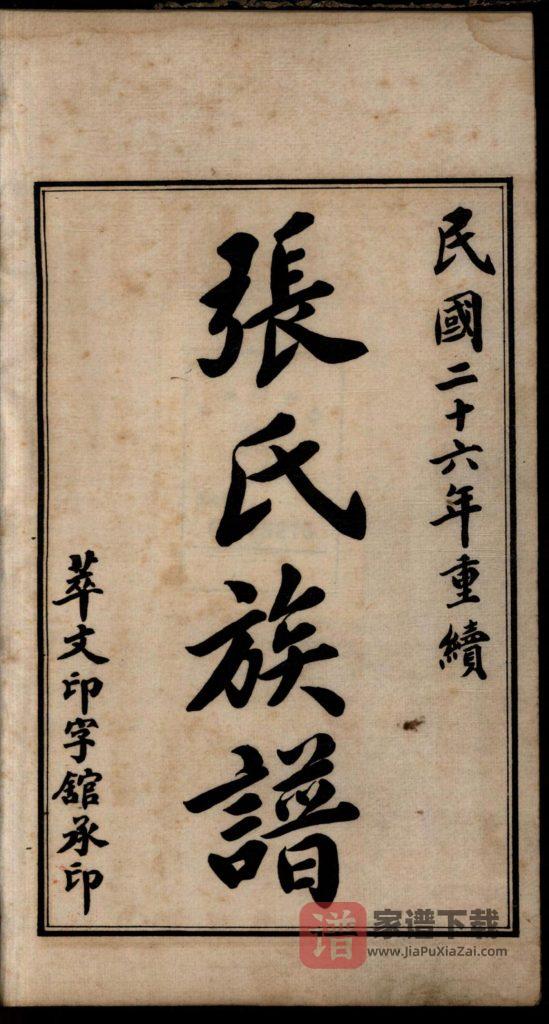 民國二十六年重續
張氏族譜
萃文印字舘承印
谱
家谱下载
www.JiaPuXiaZai.com